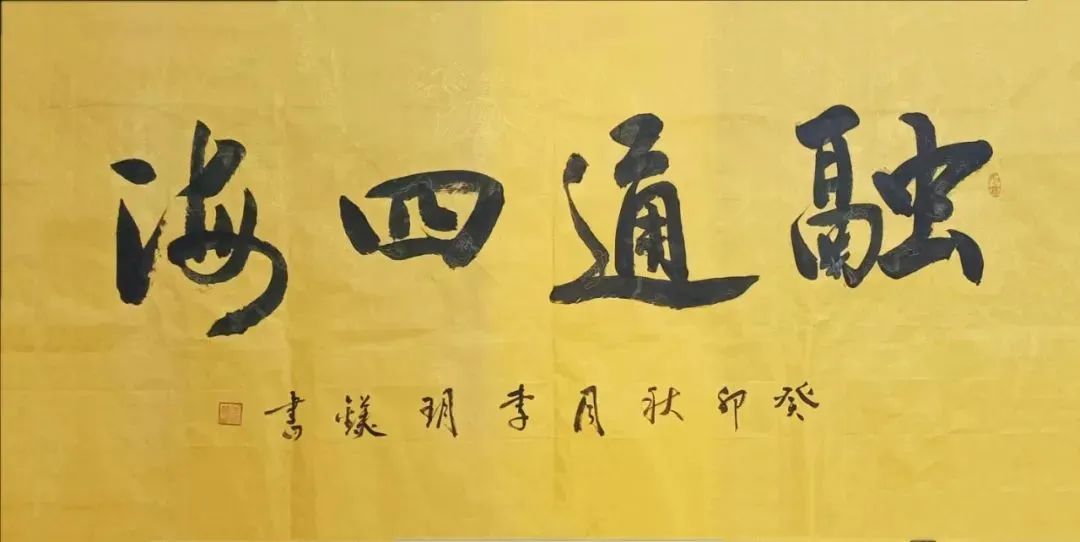 融通四海
癸卯秋月李玥鎂書